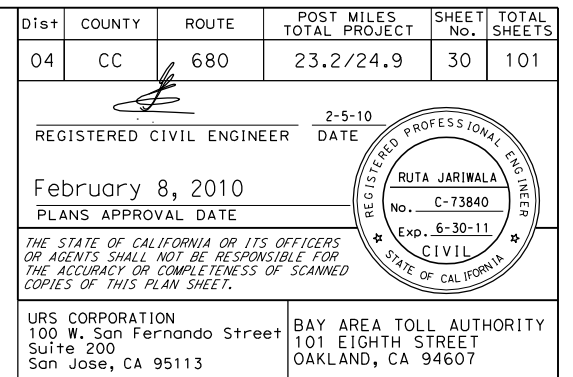 Dist COUNTY ROUTE POST MILES TOTAL PROJECT SHEET No. TOTAL SHEETS
04 CC 680 23.2/24.9 30 101
2-5-10
REGISTERED CIVIL ENGINEER DATE
February 8, 2010
PLANS APPROVAL DATE
REGISTERED PROFESSIONAL ENGINEER
RUTA JARIWALA
No. C-73840
Exp. 6-30-11
CIVIL
STATE OF CALIFORNIA
THE STATE OF CALIFORNIA OR ITS OFFICERS
OR AGENTS SHALL NOT BE RESPONSIBLE FOR
THE ACCURACY OR COMPLETENESS OF SCANNED
COPIES OF THIS PLAN SHEET.
URS CORPORATION
100 W. San Fernando Street
Suite 200
San Jose, CA 95113
BAY AREA TOLL AUTHORITY
101 EIGHTH STREET
OAKLAND, CA 94607